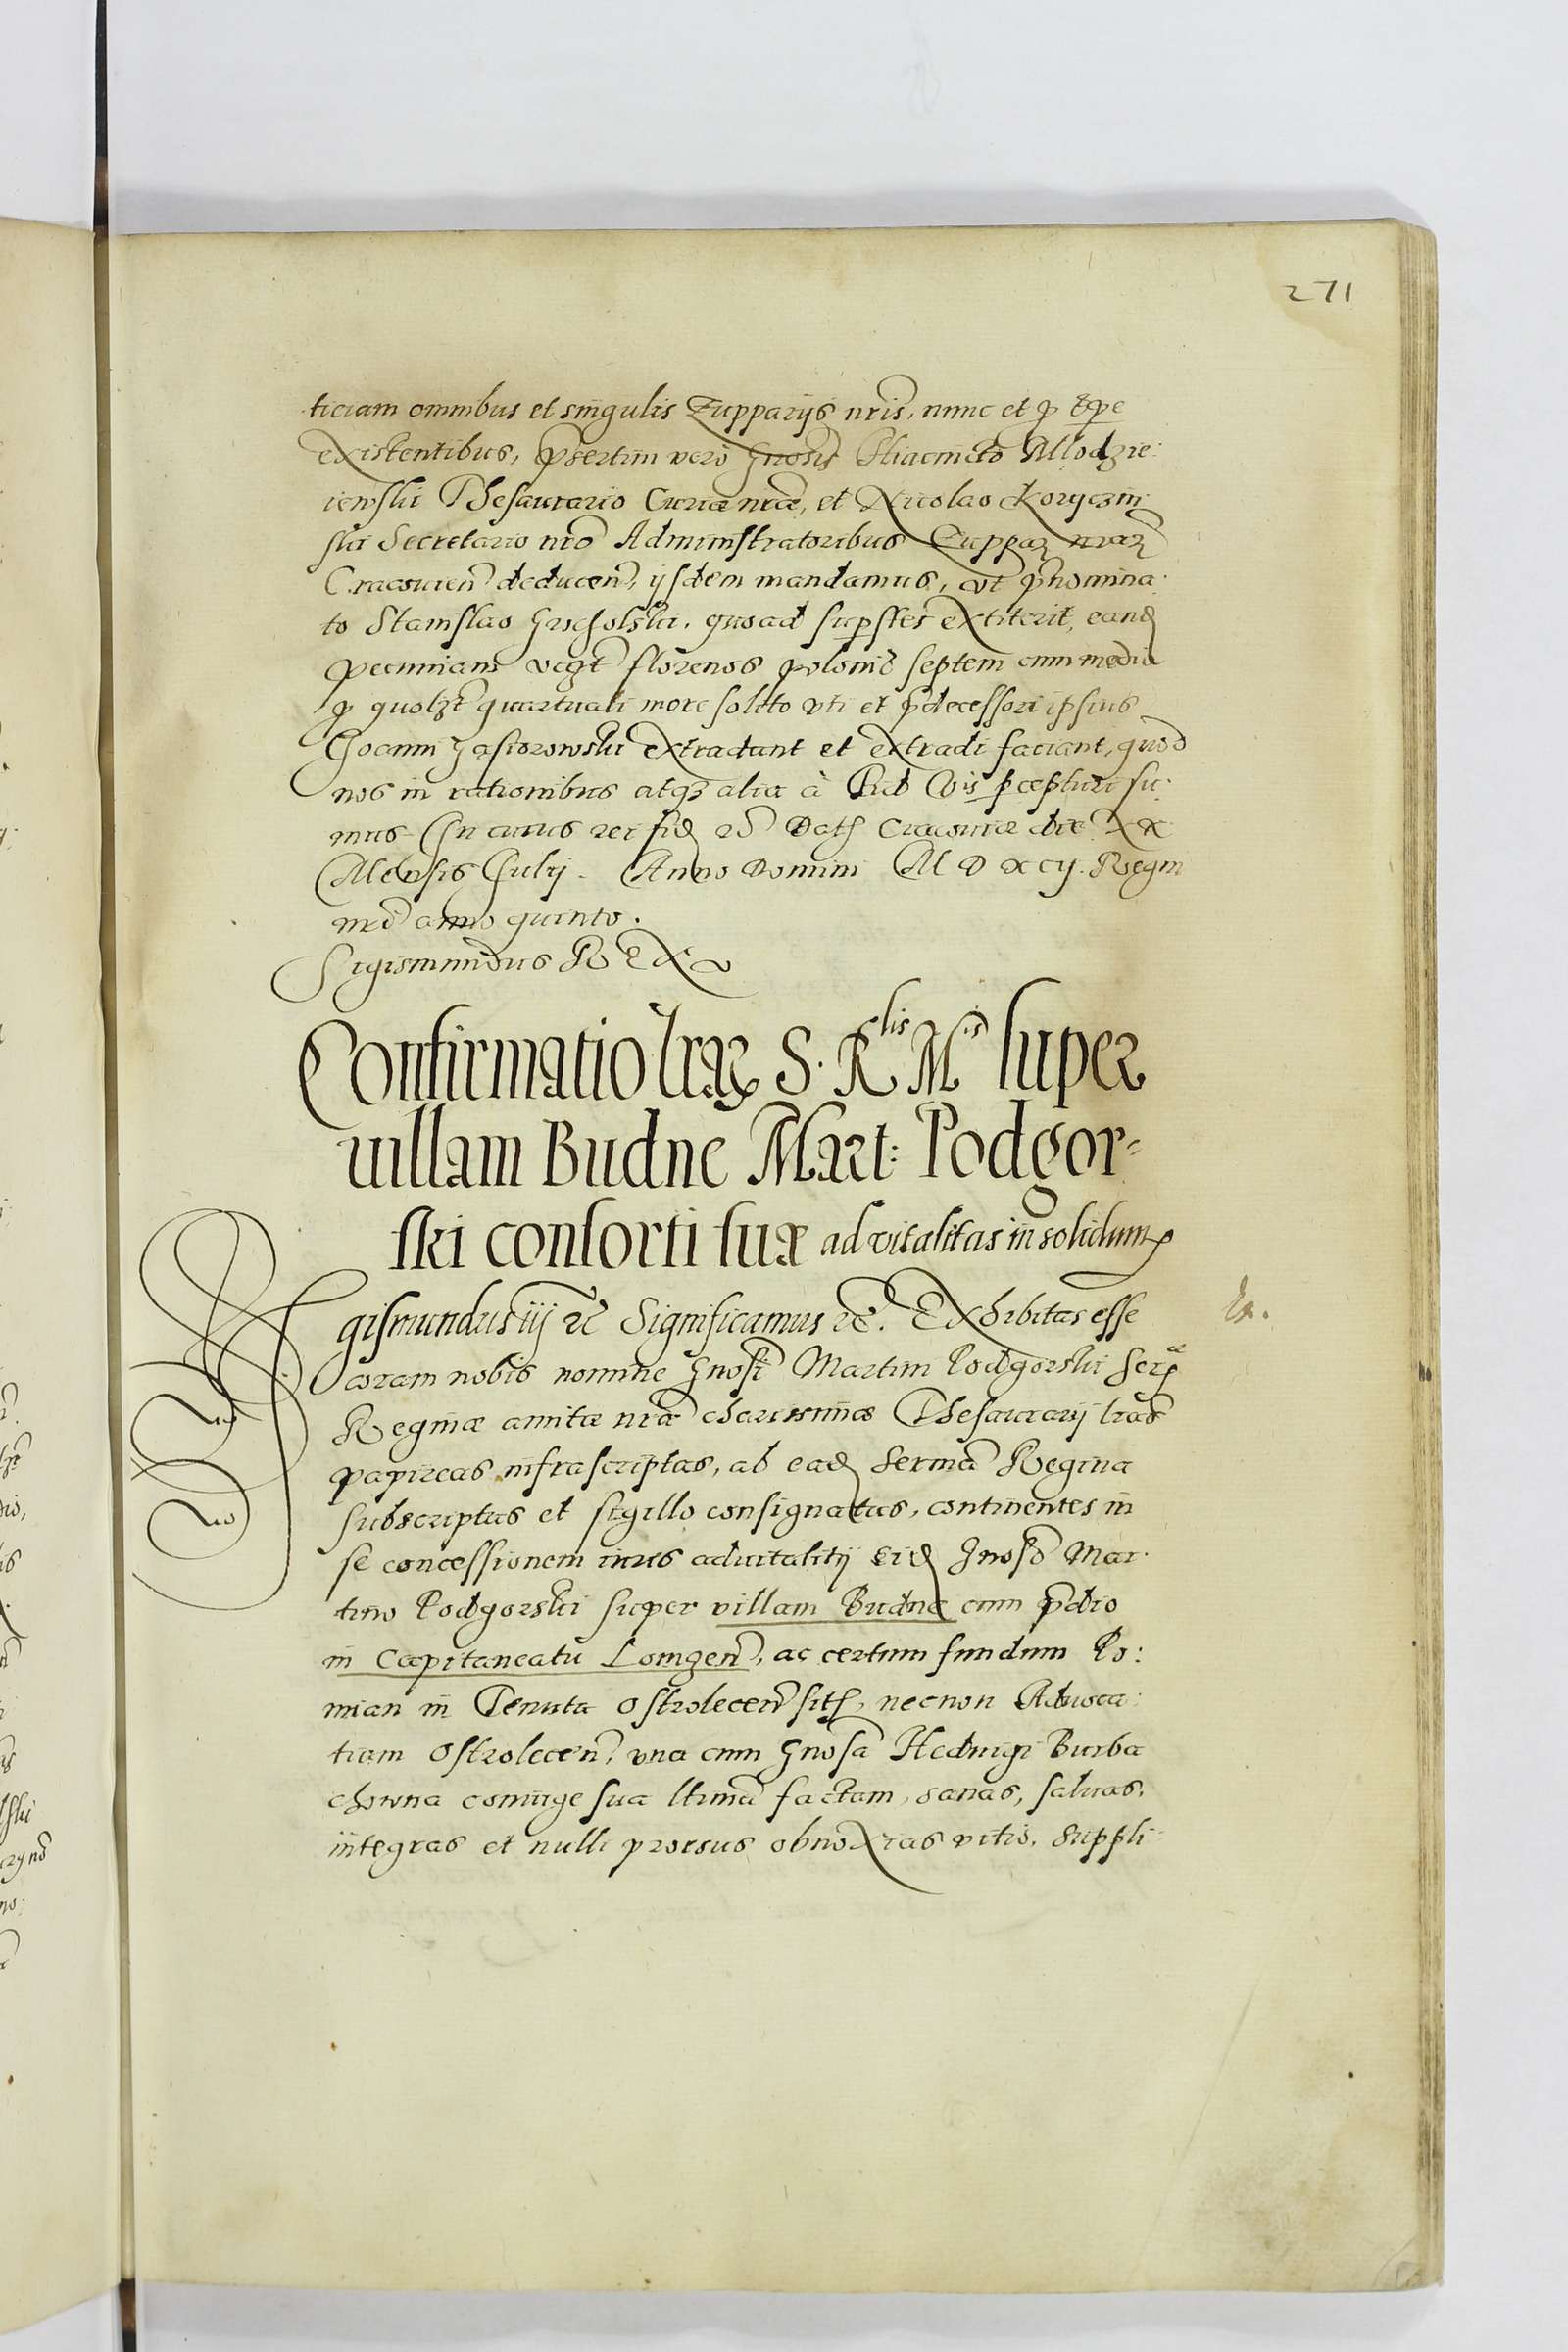 271
ticiam omnibus et singulis Zupparijs nris, nunc et p tpe
existentibus, psertim vero Gnosis Hiacincto Mlodzie:
iewski Thesaurario Curiæ nræ, et Nicolao Koryczin
ski Secretario nro Administratoribus Zuppar nrar
Cracovien deducen, ijsdem mandamus, vt pnomina:
to Stanislao Grocholski, quoad supstes extiterit, eand
pecuniam vegt florenos polonic septem cum media
p quolzt quartuali more solito vti et pdecessori ipsius
Joanni Gasiorowski extradant et extradi faciant, quod
nos in rationibus atqz alia à Fid Vis pcepturi su:
mus In cuius rei fid rc Dat Cracouiæ die XX
Mensis Julij. Anno Domini M D XCIJ. Regni
nri anno quinto.
Sigismundus REX
Confirmatio lrar S. Rlis Mtis super
uillam Budne Mart: Podgor-
ski consorti suæ ad vitalitas in solidum
Sigismundus iij rc Significamus rc. Exhibitas esse
Ex.
coram nobis nomine Gnosi Martini Podgorski Seræ
Reginæ amitæ nræ charissimæ Thesaurarij lras
papireas infrascriptas, ab ead Serma Regina
subscriptas et sigillo consignatas, continentes in
se concessionem iuris aduitalitij eid Gnoso Mar:
tino Podgorski super villam Budne cum pdio
in Capitaneatu Lomzen, ac certum fundum Po:
mian in Tenuta Ostrolecen sit, necnon Aduoca:
tiam Ostrolecen, vna cum Gnosa Heduigi Burba
chowna coniuge sua ltima factam, sanas, saluas,
integras et nulli prorsus obnoxias vitio. Suppli